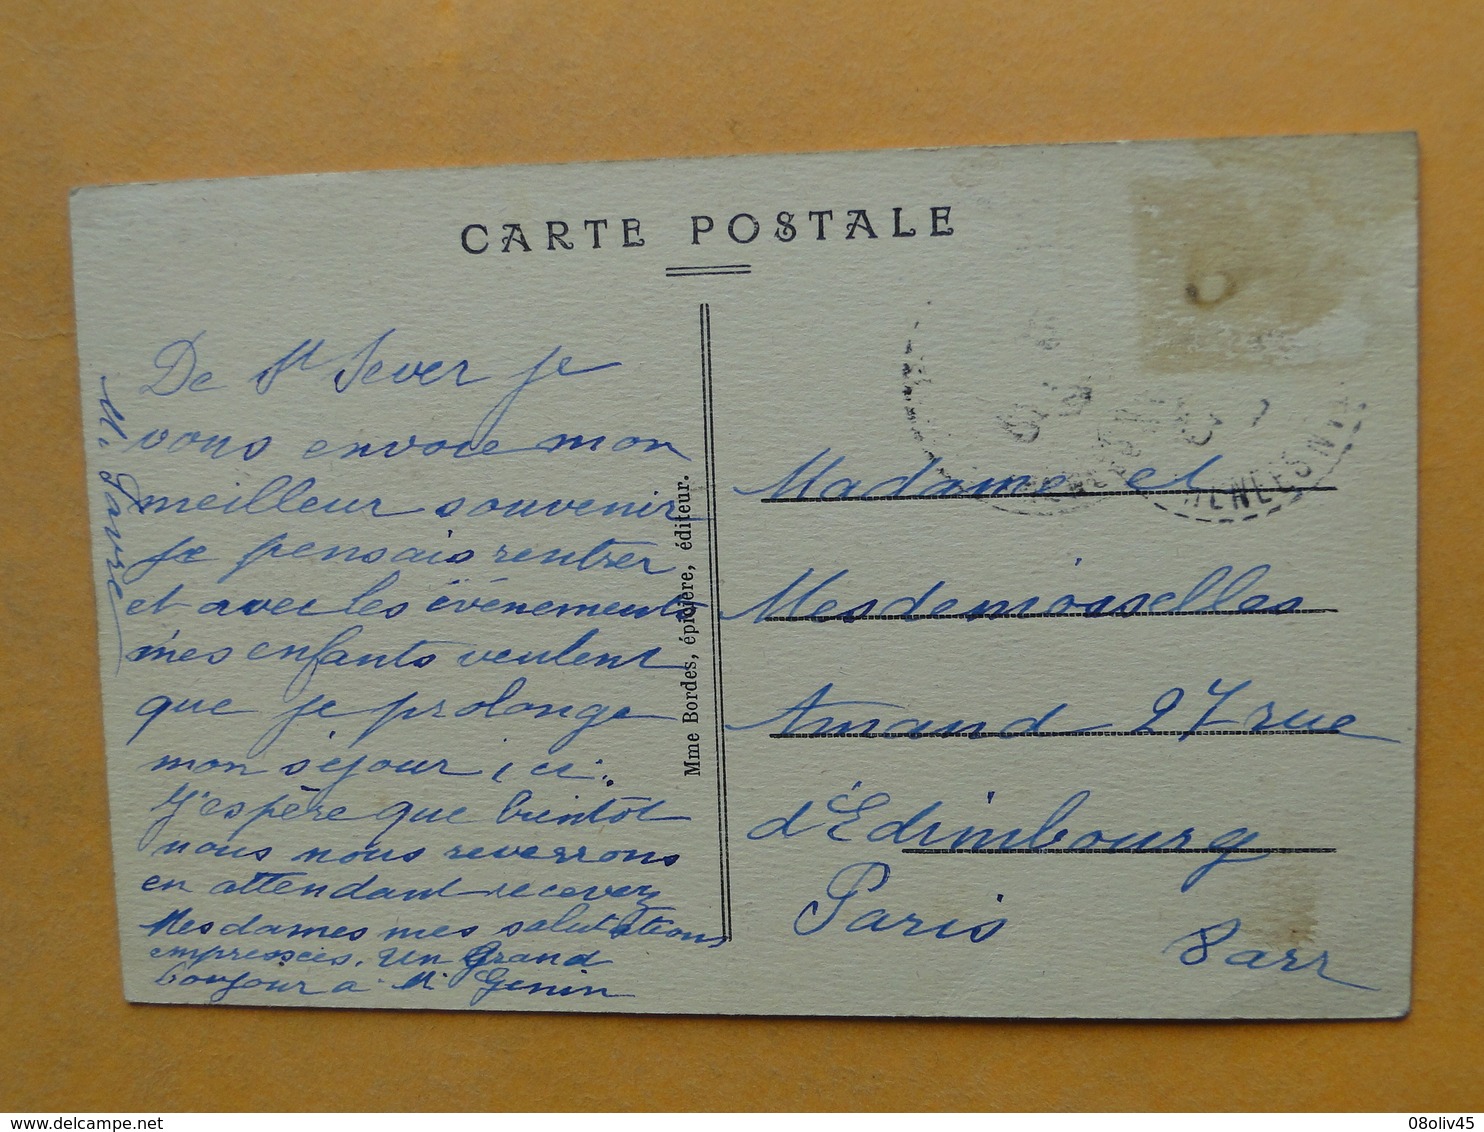 CARTE POSTALE
De St Sever je
vous envoie mon
meilleur souvenir
je pensais rentrer
et avec les évènements
mes enfants veulent
que je prolonge
mon séjour ici.
J'espère que bientôt
nous nous reverrons
en attendant recevez
Mesdames mes salutations
empressées. Un Grand
bonjour à M Genin
M. Favre
Mme Bordes, épicière, éditeur.
Madame et
Mesdemoiselles
Amand 27 rue
d'Edimbourg
Paris
8 arr
delcampe.net
08oliv45